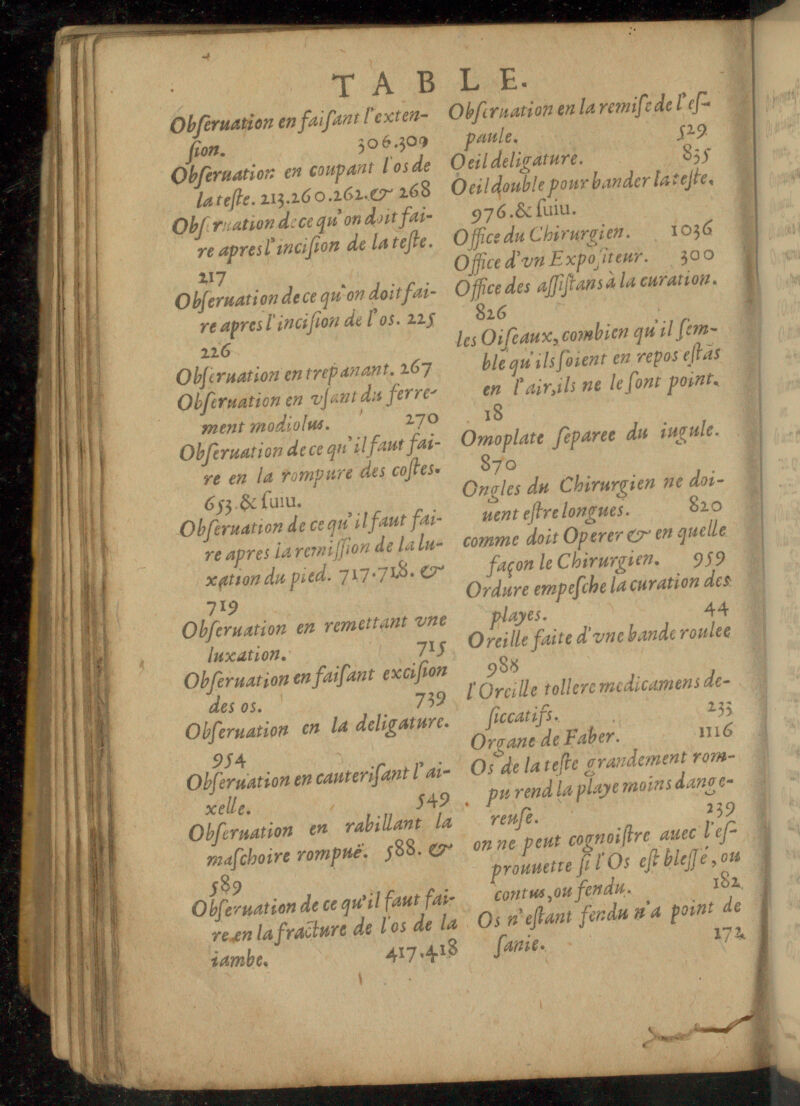 TABLE.
Obseruation en faisant l'exten-
sion. 306.309
Obseruation en coupant l'os de
la teste. 213.260.262.& 268
Obseruation de ce qu'on doit fai-
re apres l'incision de la teste.
217
Obseruation de ce qu'on doit fai-
re apres l'incision de l'os. 225
226
Obseruation en trepanant. 267
Obseruation en vsant du ferre-
ment modiolus. 270
Obseruation de ce qu'il faut fai-
re en la rompure des costes.
653.& suiu.
Obseruation de ce qu'il faut fai-
re apres la remission de la lu-
xation du pied. 717.718. &
719
Obseruation en remettant vne
luxation. 715
Obseruation en faisant excision
des os. 739
Obseruation en la deligature.
954
Obseruation en cauterisant l'ai-
xelle. 549
Obseruation en rabillant la
maschoire rompuë. 588. &
589
Obseruation de ce qu'il faut fai-
re en la fracture de l'os de la
iambe. 417.418
Obseruation en la remise de l'es-
paule. 529
Oeil deligature. 835
Oeil double pour bander la teste.
976.& suiu.
Office du Chirurgien. 1036
Office d'vn Expositeur. 300
Office des assistans à la curation.
826
les Oiseaux, combien qu'il sem-
ble qu'ils soient en repos estās
en l'air, ils ne le sont point.
18
Omoplate separee du iugule.
870
Ongles du Chirurgien ne doi-
uent estre longues. 820
comme doit Operer & en quelle
façon le Chirurgien. 959
Ordure empesche la curation des
playes. 44
Oreille faite d'vne bande roulee
988
l'Oreille tollere medicamens de-
siccatifs. 233
Organe de Faber. 1116
Os de la teste grandement rom-
pu rend la playe moins dange-
reuse. 239
on ne peut cognoistre auec l'es-
prouuette si l'Os est blessé, ou
contus, ou fendu. 182
Os n'estant fendu n'a point de
sanie. 172